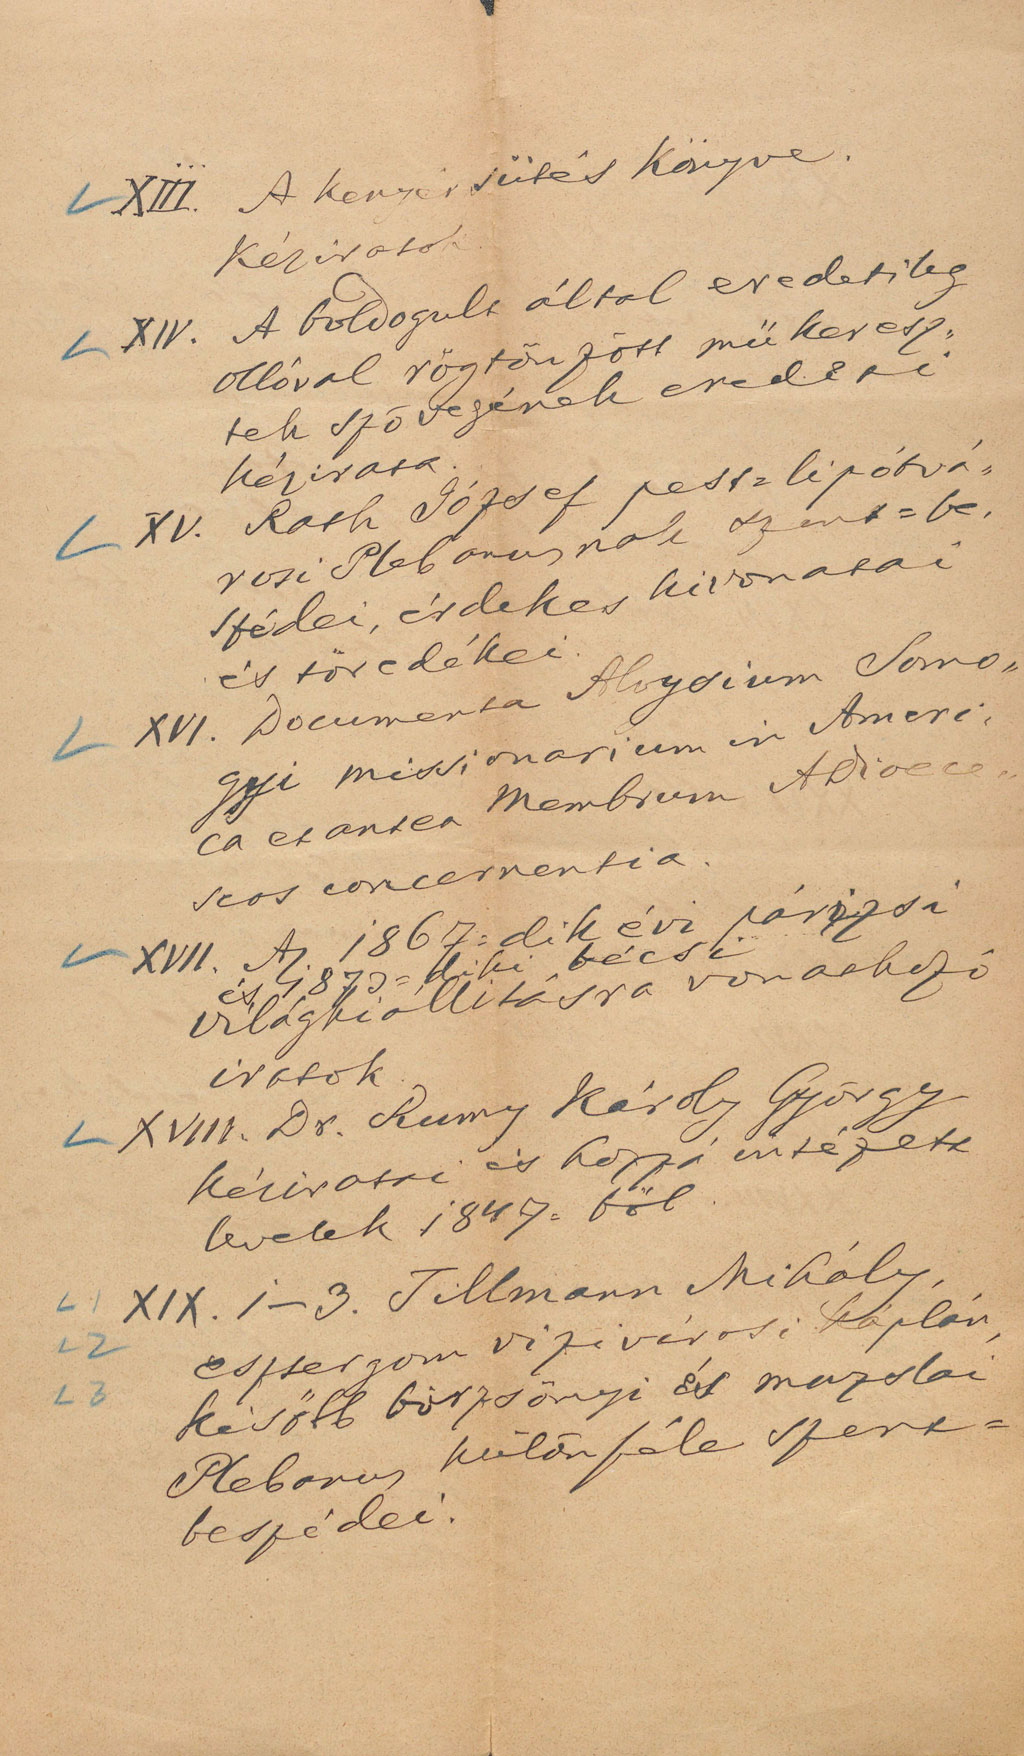 XIII. A kenyérsütés Könyve.
Kéziratok
XIV. A boldogult által eredetileg
ollóval rögtönzött műkeresz-
tek szövegének eredeti
kézirata.
XV. Rath József pest=lipótvá-
rosi Plebanusnak szent=be-
szédei, érdekes kivonatai
és töredékei.
XVI. Documenta Aloysium Somo-
gyi missionarium in Ameri-
ca et antea Membrum ADioece-
seos concernentia.
XVII. Az 1867=dik évi párizsi
és 1873=diki bécsi
világkiállításra vonatkozó
iratok
XVIII. Dr. Rumy Károly György
kéziratai és hozzá intézett
levelek 1847=ből.
L1 XIX. 1–3. Tillmann Mihály,
L2 esztergom vizivárosi káplán,
L3 később börzsönyi és muzslai
Plebanus különféle szent=
beszédei.